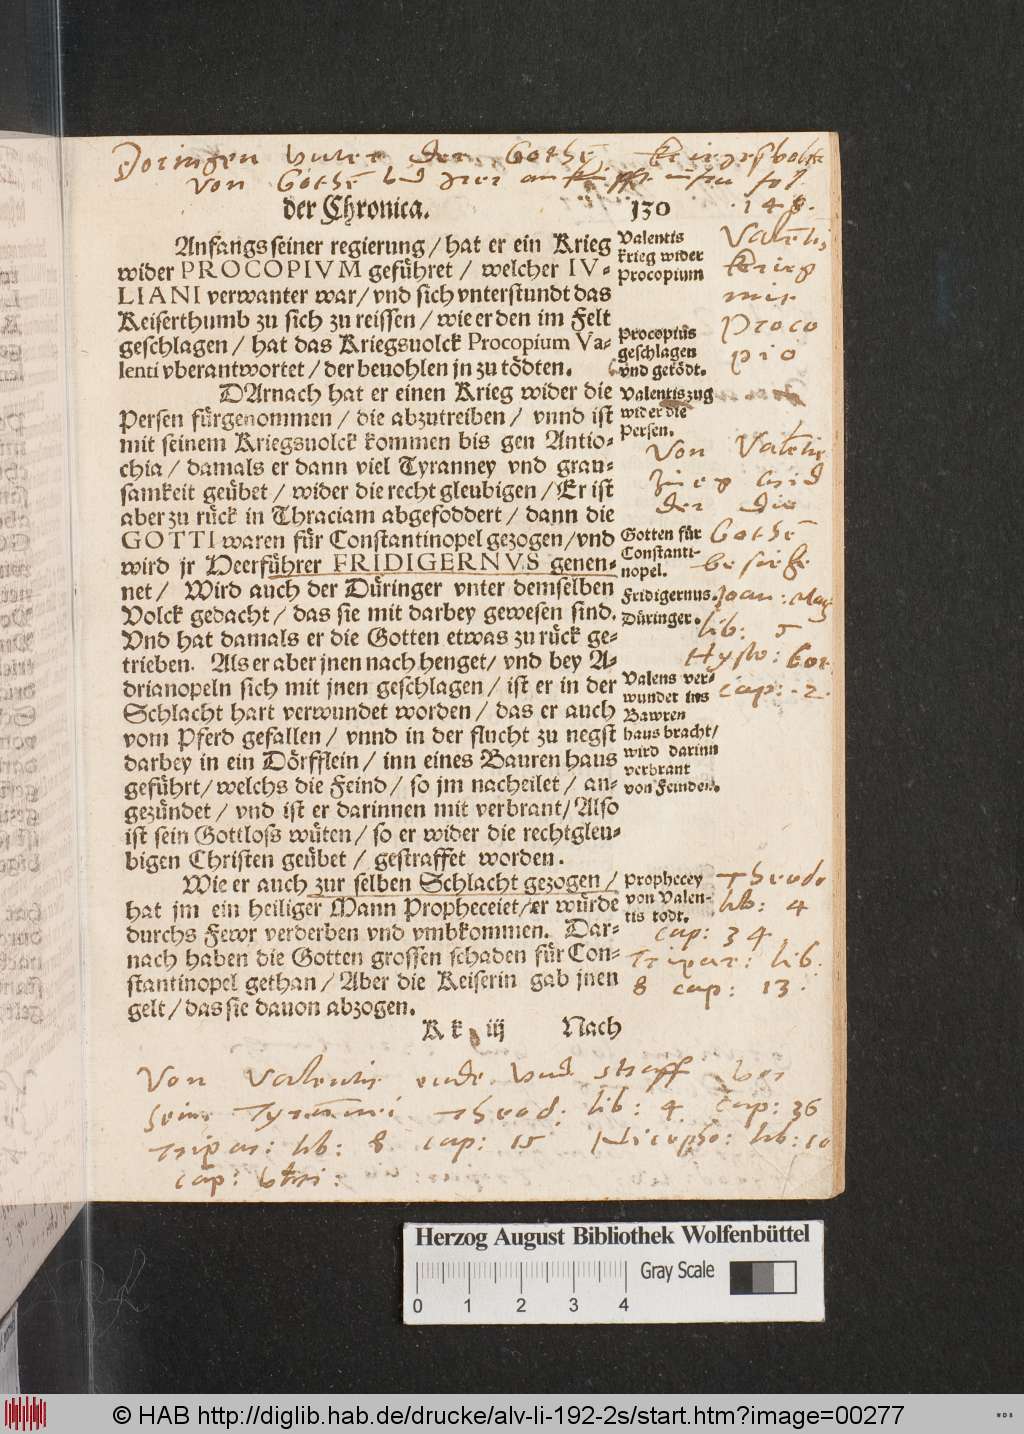 Doringen vnter den Gothē kriegesvolck
von Gothē
der Chronica. 130 148.
Anfangs seiner regierung / hat er ein Krieg
wider PROCOPIVM geführet / welcher IV-
LIANI verwanter war / vnd sich vnterstundt das
Keiserthumb zu sich zu reissen / wie er den im Felt
geschlagen / hat das Kriegsuolck Procopium Va-
lenti vberantwortet / der beuohlen jn zu tödten.
DArnach hat er einen Krieg wider die
Persen fürgenommen / die abzutreiben / vnnd ist
mit seinem Kriegsuolck kommen bis gen Antio-
chia / damals er dann viel Tyranney vnd grau-
samkeit geübet / wider die recht gleubigen / Er ist
aber zu rück in Thraciam abgefoddert / dann die
GOTTI waren für Constantinopel gezogen / vnd
wird jr Heerführer FRIDIGERNVS genen-
net / Wird auch der Düringer vnter demselben
Volck gedacht / das sie mit darbey gewesen sind.
Vnd hat damals er die Gotten etwas zu rück ge-
trieben. Als er aber jnen nach henget / vnd bey A-
drianopeln sich mit jnen geschlagen / ist er in der
Schlacht hart verwundet worden / das er auch
vom Pferd gefallen / vnnd in der flucht zu negst
darbey in ein Dörfflein / inn eines Bauren haus
geführt / welchs die Feind / so jm nacheilet / an-
gezündet / vnd ist er darinnen mit verbrant / Also
ist sein Gottloss wüten / so er wider die rechtgleu-
bigen Christen geübet / gestraffet worden.
Wie er auch zur selben Schlacht gezogen /
hat jm ein heiliger Mann Propheceiet / er würde
durchs Fewr verderben vnd vmbkommen. Dar-
nach haben die Gotten grossen schaden für Con-
stantinopel gethan / Aber die Keiserin gab jnen
gelt / das sie dauon abzogen.
K k iij Nach
Valentis
krieg wider
Procopium
Procopius
geschlagen
vnd getödt.
Valentis zug
wider die
Persen.
Gotten für
Constanti-
nopel.
Fridigernus.
Düringer.
Valens ver-
wundet ins
Bawren
haus bracht /
wird darinn
verbrant
von Feinden.
Prophecey
von Valen-
tis todt.
Valētis
krieg
mit
Proco
pio
Von Valētis
zueg wid
der die
Gothē
Joan: Mag
lib: 5
Hysto: Got
cap: 2.
Theodo
lib: 4
cap: 34
Tripar: lib.
8 cap: 13.
Von Valentis ende vnd straff
seine Tyrānei Theod: lib: 4 cap: 36
Tripar: lib: 8 cap: 15 Nicepho: lib: 10
cap:
Herzog August Bibliothek Wolfenbüttel
Gray Scale
0 1 2 3 4
© HAB http://diglib.hab.de/drucke/alv-li-192-2s/start.htm?image=00277